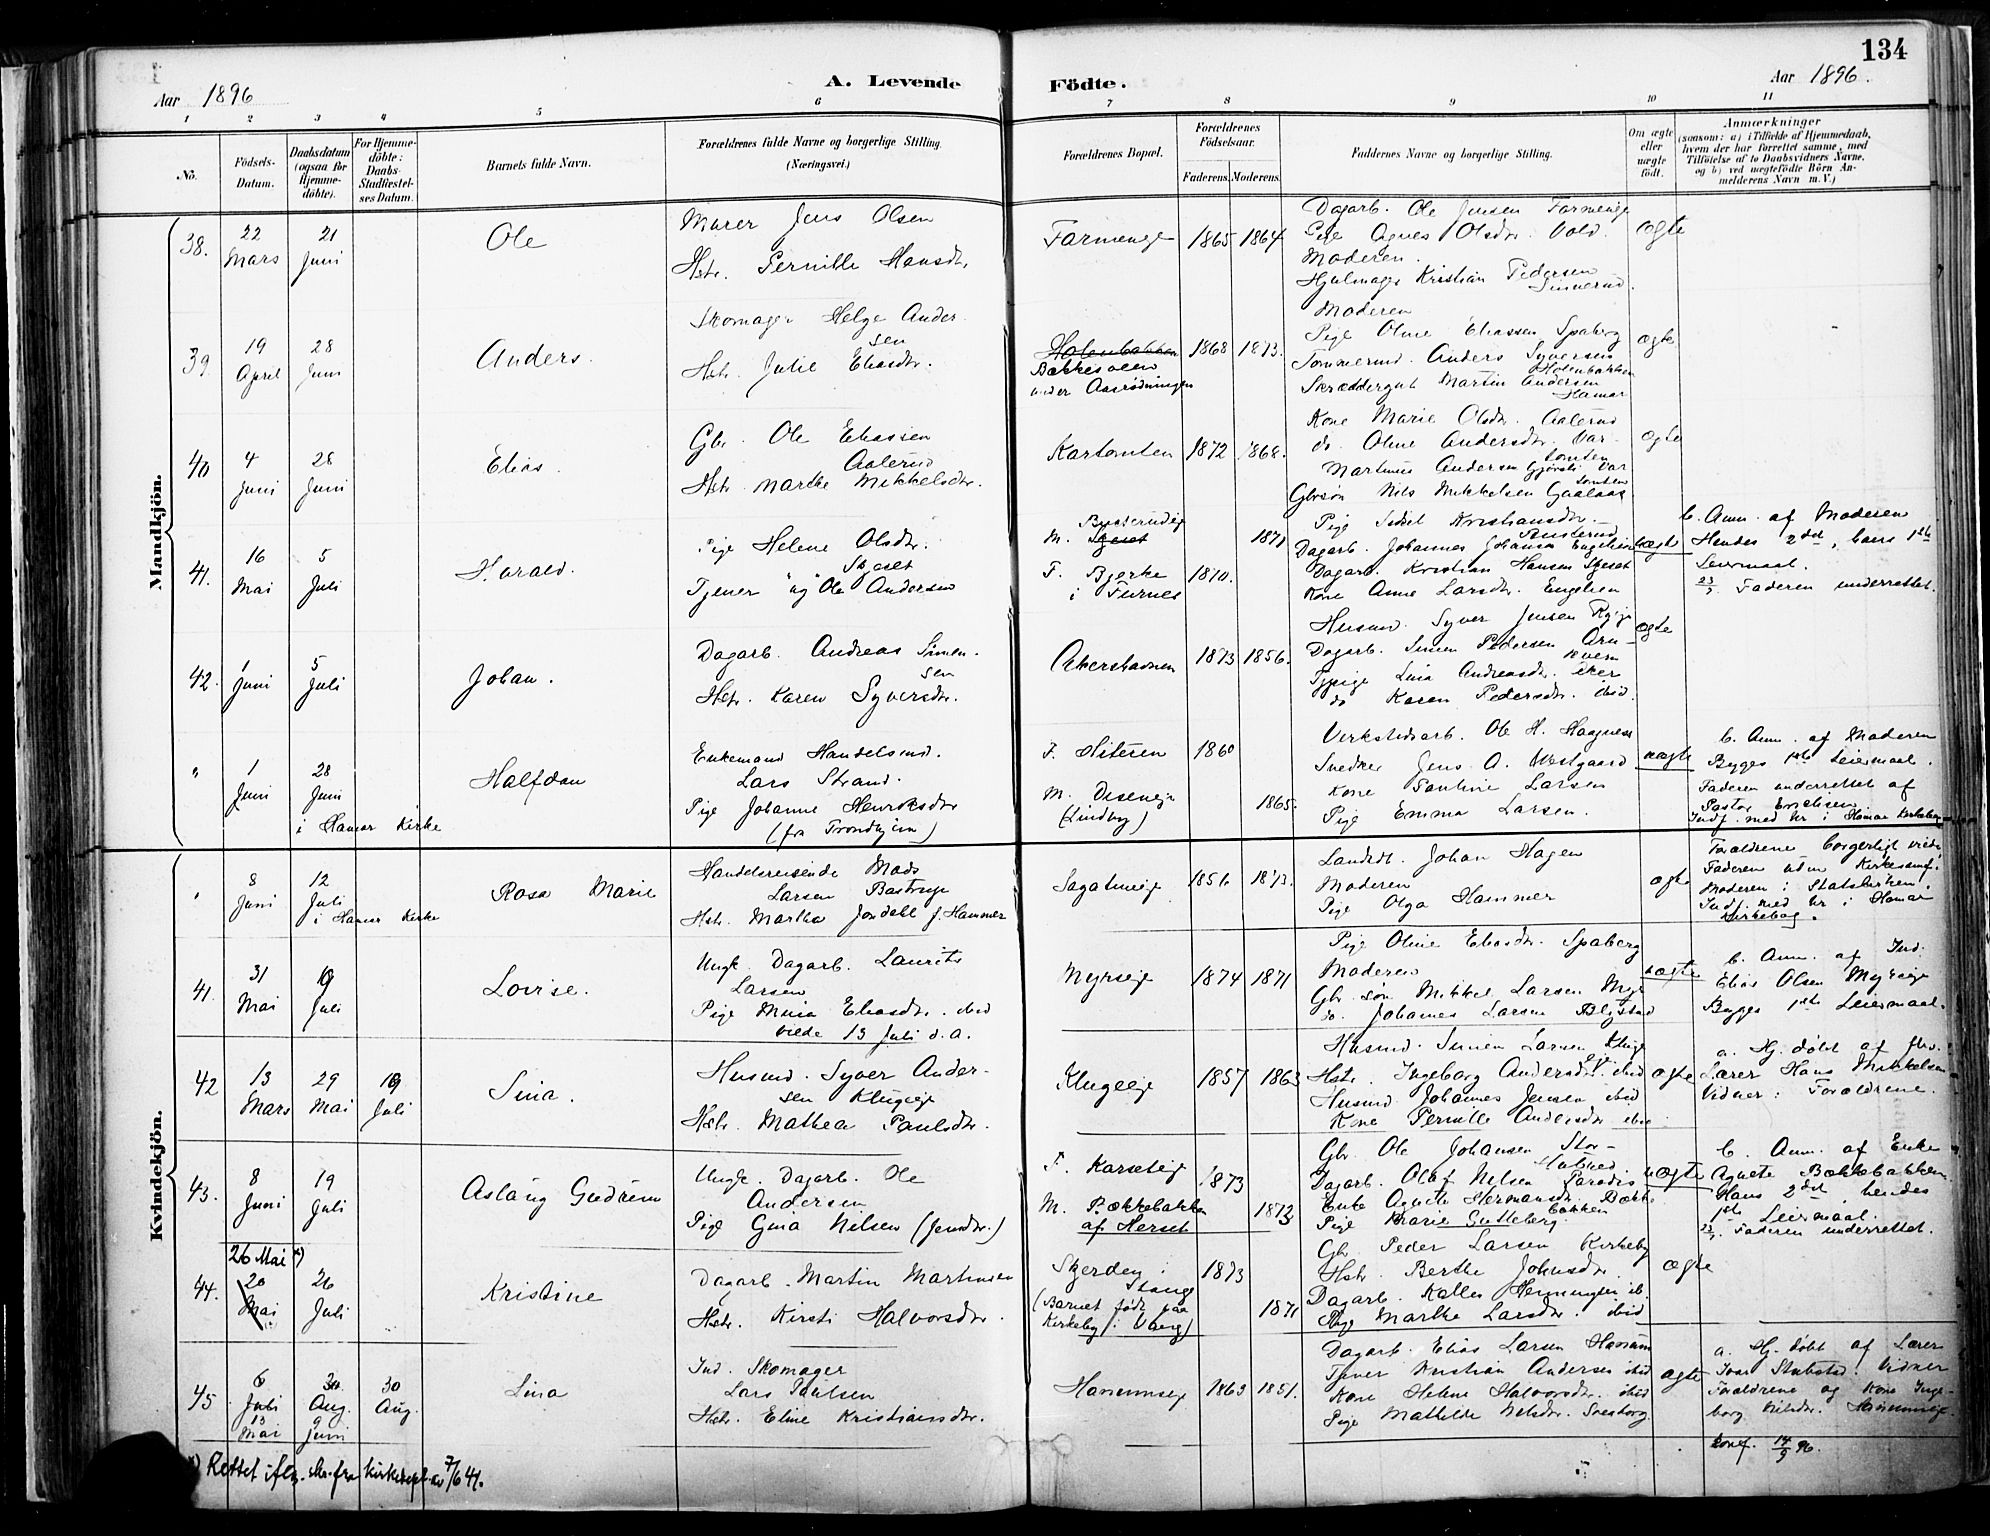 134
Aar 1896
A. Levende
Födte.
Aar 1896.
1 2 3 4 5 6 7 8 9 10 11
No.
Födsels-Datum.
Daabsdatum (ogsaa for Hjemme-döbte).
For Hjemme-döbte: Daabs-Stadfæstel-ses Datum.
Barnets fulde Navn.
Forældrenes fulde Navne og borgerlige Stilling. (Næringsvei.)
Forældrenes Bopæl.
Forældrenes Födselsaar.
Faderens. Moderens.
Faddernes Navne og borgerlige Stilling.
Om ægte eller uægte födt.
Anmærkninger
(saasom: a) i Tilfælde af Hjemmedaab,
hvem der har forrettet samme, med
Tilföielse af to Daabsvidners Navne,
og b) ved uægtefödte Börn An-
melderens Navn m. V.)
Mandkjön.
38.
22 Mars
21 Juni
Ole
Murer Jens Olsen
Hstr. Pernille Hansdtr.
Farmeneje
1865 1864
Dagarb. Ole Jensen Farmeneje
Pige Agnes Olsdtr. Vold
Moderen.
Hjulmager Kristian Pedersen
ægte
39
19 April
28 Juni
Anders.
Skomager Helge Ander-
sen
Hstr. Julie Eliasdtr.
Holenbakken
Bakkesveen
under Aasrødningen
1868 1873.
Moderen
Pige Oline Eliassen Spaberg
Tømmermd. Anders Syversen
Holenbakken
Skræddergut Martin Andersen
Hamar
ægte
40
4 Juni
28 Juni
Elias.
Gbr. Ole Eliassen
Aalerud
Hstr. Marthe Mikkelsdtr.
Kartomten
1872 1868.
Kone Marie Olsdtr. Aalerud
do. Oline Andersdtr. Var-
tomten
Martinus Andersen
Gbrsøn Nils Mikkelsen Gaalaas
ægte
41.
16 Mai
5 Juli
Harald.
Pige Helene Olsdtr.
Skjeset
Tjener og Ole Andersen
M.
F. Bjerke
i Furnes
1871
1870.
Pige Sidsel Kristiansdtr.
Dagarb. Johannes Johansen Engelien
Dagarb. Kristian Hansen Skjeset
Kone Anne Larsdtr. Engelien
uægte
b. Anm. af Moderen
Hendes 2det, hans 1ste
Leiermaal.
Faderen underrettet.
42.
1 Juni
5 Juli
Johan.
Dagarb. Andreas Simen-
sen
Hstr. Karen Syversdtr.
Akershavnen
1873 1856.
Husmd. Syver Jensen
Dagarb. Simen Pedersen Arn-
kvern
Tjpige Lina Andreasdtr. Aker
do Karen Pedersdtr. ibid.
ægte
"
1 Juni
28 Juni
i Hamar Kirke
Halfdan
Enkemand Handelsmd.
Lars Strand.
Pige Johanne Henriksdtr
(fra Trondhjem)
M. Diseneje
(Lindberg)
1860
1865.
Verkstedsarb. Ole H. Haagnæss
Snedker Jens A. Westgaard
Kone Pauline Larsen
Pige Emma Larsen.
uægte
b. Anm. af Moderen
Begges 1ste Leiermaal.
Faderen underrettet af
Pastor
Indf. med Nr i Hamar Kirkebog
Kvindekjön.
8 Juni
12 Juli
i Hamar Kirke
Rosa Marie
Handelsreisende Mads
Larsen Bastrup
Hstr. Martha Jordahl f. Hammer
Sagatuneje
1856 1873.
Landsdt. Johan Hagen
Moderen
Pige Olga Hammer
ægte
Forældrene borgerligt viede
Faderen uden Kirkesamf.
Moderen i Statskirken.
Indf. med Nr i Hamar
Kirkebog.
41.
31 Mai
19 Juli
Lovise.
Ungk. Dagarb. Laurits
Larsen
Pige Mina Eliasdtr. ibid
viede 13 Juli d. a.
Myrseje
1874 1871
Pige Oline Eliasdtr. Spaberg
Moderen
Gbr.søn Mikkel Larsen Myr
do. Johannes Larsen
uægte
b. Anm. af Ind.
Elias Olsen Myrseje
Begges 1ste Leiermaal.
42
13 Mars
29 Mai
19 Juli
Sina.
Husmd. Syver Ander-
sen Klugeeje
Hstr. Mathea Paulsdtr.
Klugeeje
1857 1863
Husmd. Simen Larsen Kluge
Hstr. Ingeborg Andersdtr. ibid
Husmd. Johannes Jensen ibid
Kone Pernille Andersdtr. ibid
ægte
a. Hj. døbt af fhv.
Lærer Hans Mikkelsen
Vidner: Forældrene.
43.
8 Juni
19 Juli
Aslaug Gudrun
Ungk. Dagarb. Ole
Andersen
Pige Gina Nilsen (Jensdtr.)
F. Karseteje
M. Bækkebakken
af Herset
1873
1873
Gbr. Ole Johansen Stor-
Dagarb. Olaf Nilsen Paradis
Enke Agnete Hermansdtr. Bække-
bakken
Pige Marie Gutteberg.
uægte
b. Anm. af Enke
Agnete Bækkebakken
Hans 2det, hendes
1ste Leiermaal.
Faderen underrettet.
44.
26 Mai *)
20 Mai
26 Juli
Kristine
Dagarb. Martin Martinsen
Hstr. Kirsti Halvorsdtr.
Skjerden i
Stange
(Barnet født paa
Kirkeby i Vang)
1873
1871
Gbr. Peder Larsen Kirkeby
Hstr. Berthe Johnsdtr.
Dagarb. Kalles Henningsen ib.
Pige Marthe Larsdtr. ibid
ægte
45
6 Juli
13 Mai
30 Aug.
9 Juni
30 Aug.
Lina
Ind. Skomager
Lars Paulsen
Hstr. Eline Kristiansdtr.
Hanumseje
1863 1851.
Dagarb. Elias Larsen Hanum
Tjener Kristian Andersen ibid
Kone Helene Halvorsdtr. ibid
Pige Mathilde Nilsdtr.
ægte
a. Hj. døbt af Lærer
Iver Stabstad. Vidner
Forældrene og Kone Inge-
borg Nilsdtr. Hanumseje.
Konf. 14/9 96.
*) Rettet iflg. skr. fra Kirkedept. av 7/6 41.